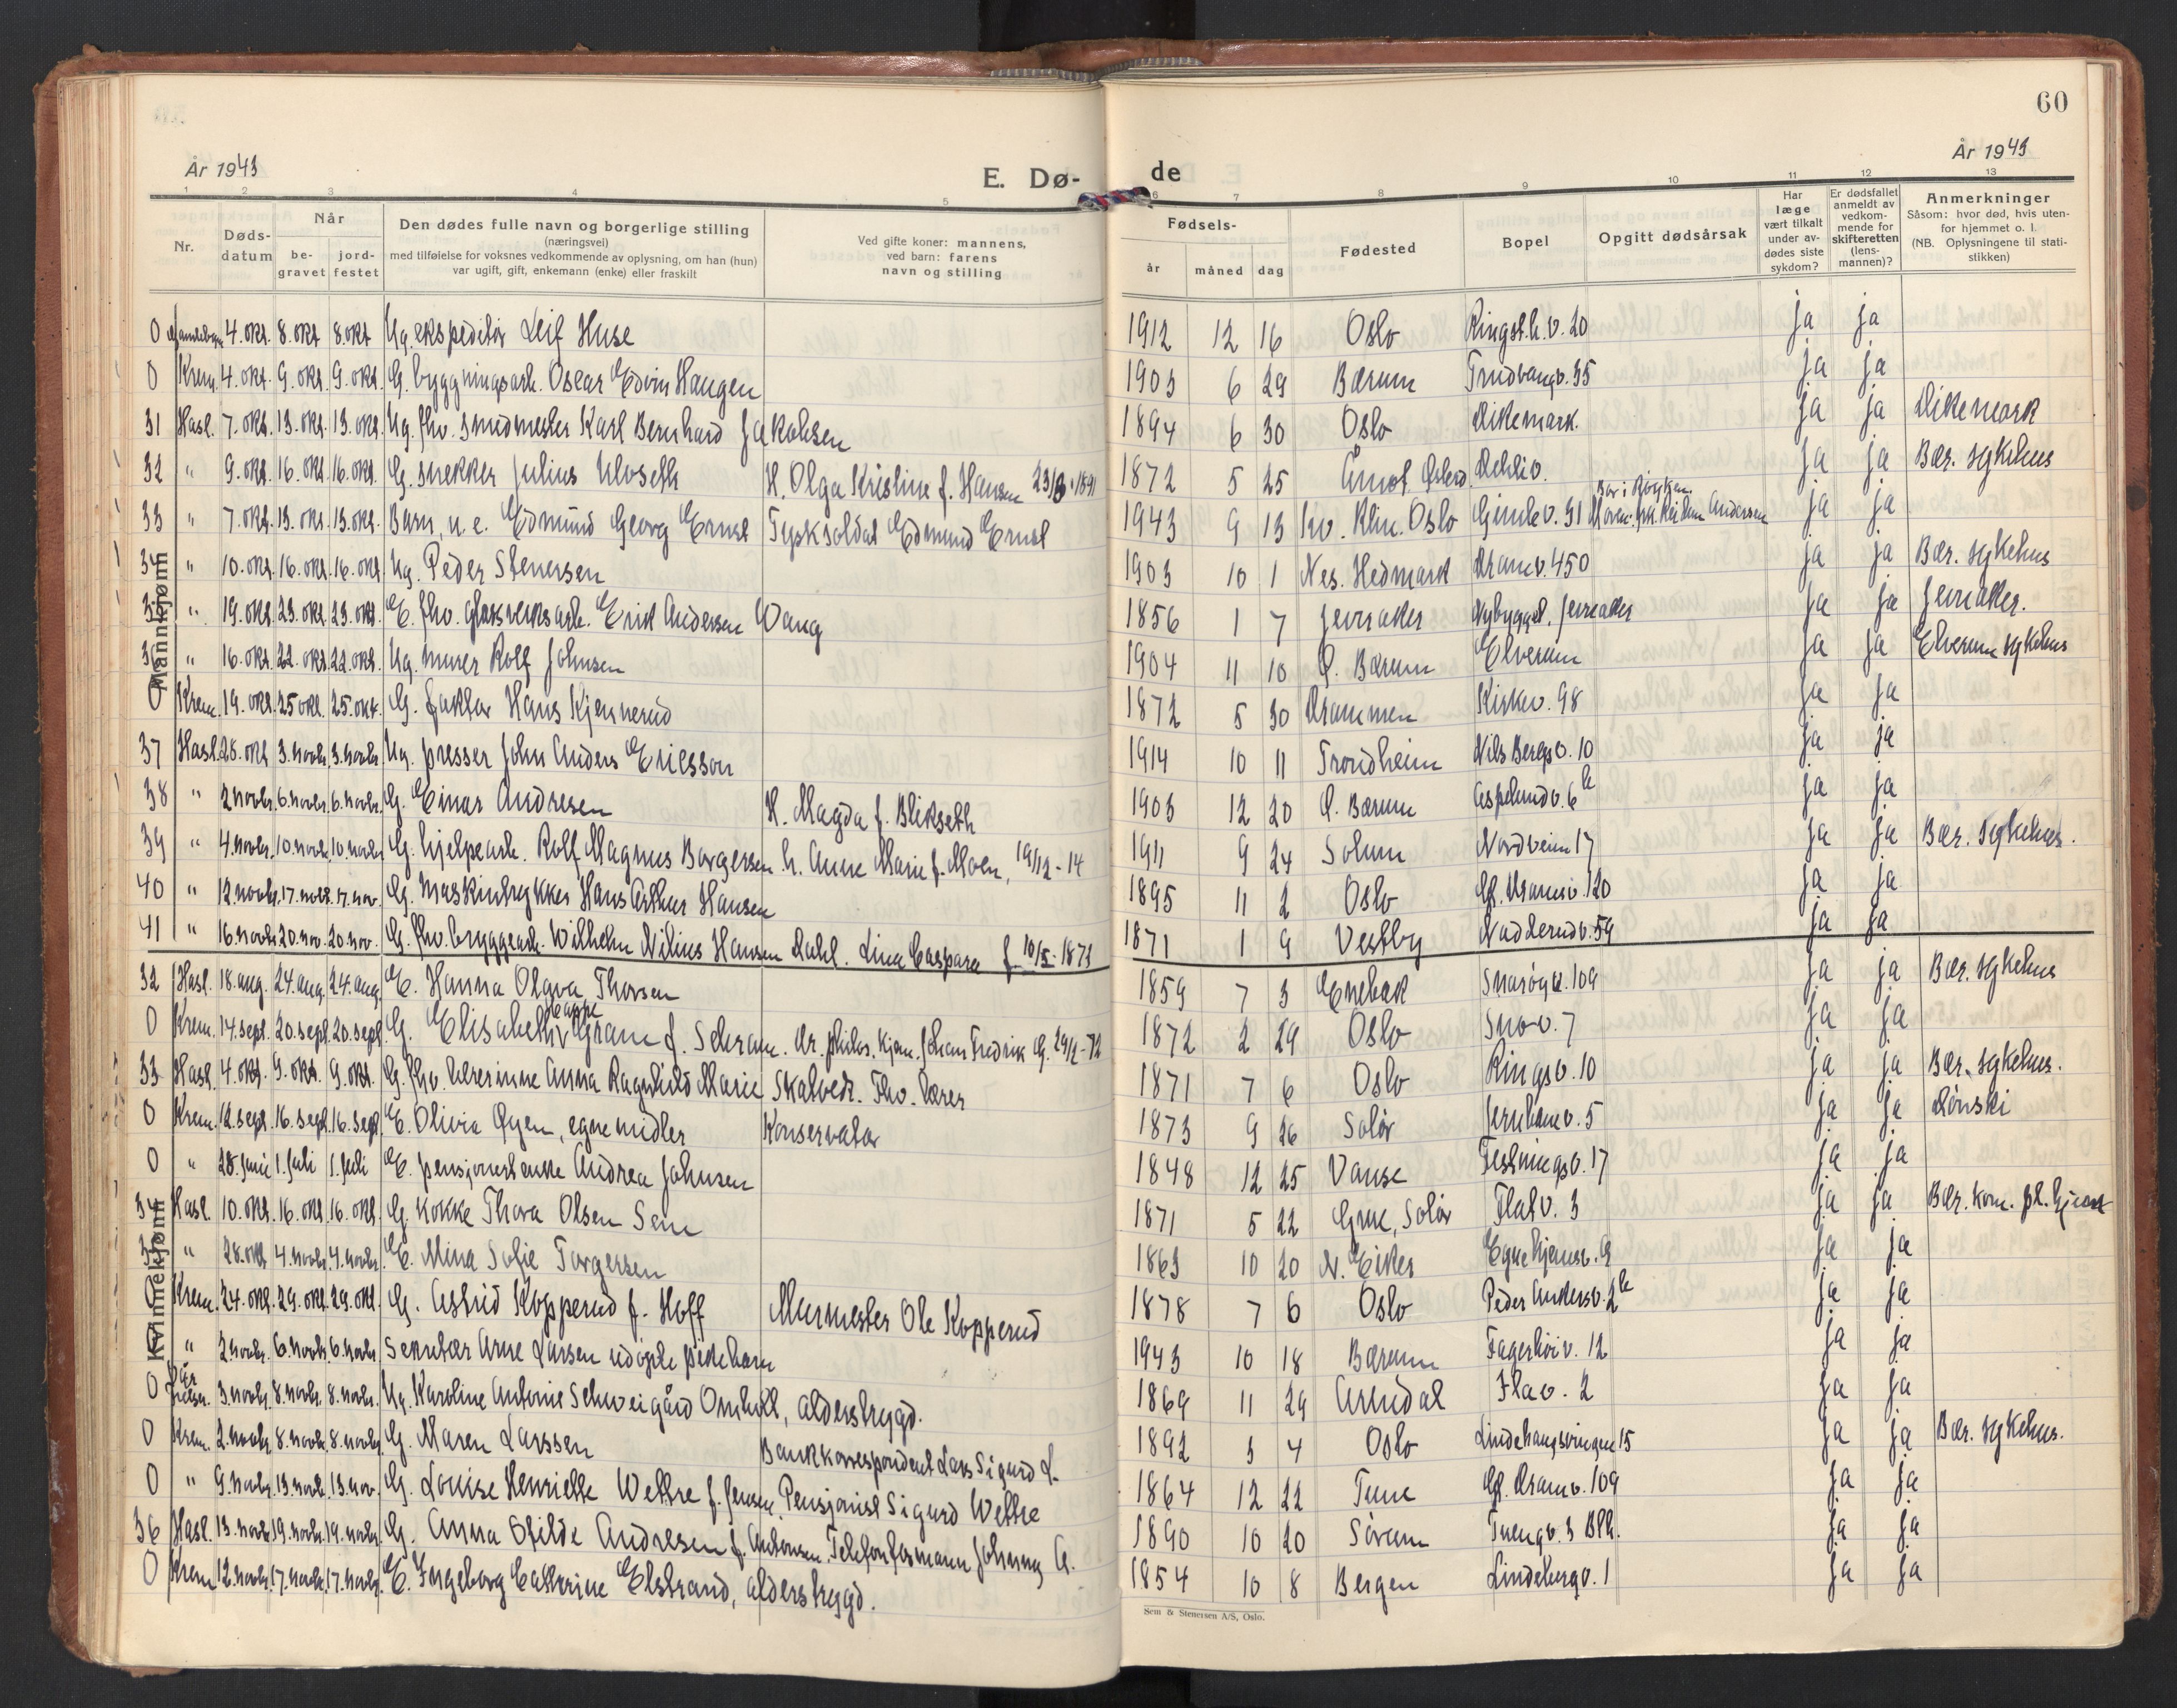 60
År 1943
E. Dø-
de
År 1943
1 2 3 4 5 6 7 8 9 10 11 12 13
Nr.
Døds-
datum
Når
be-
gravet
jord-
festet
Den dødes fulle navn og borgerlige stilling
(næringsvei)
med tilføielse for voksnes vedkommende av oplysning, om han (hun)
var ugift, gift, enkemann (enke) eller fraskilt
Ved gifte koner: mannens,
ved barn: farens
navn og stilling
Fødsels-
år måned dag
Fødested
Bopel
Opgitt dødsårsak
Har
læge
vært tilkalt
under av-
dødes siste
sykdom?
Er dødsfallet
anmeldt av
vedkom-
mende for
skifteretten
(lens-
mannen)?
Anmerkninger
Såsom: hvor død, hvis uten-
for hjemmet o. l.
(NB. Oplysningene til stati-
stikken)
Mannkjønn
0 4. okt. 8. okt 8. okt Ug. ekspeditør Leif Huse 1912 12 16 Oslo Ringst.h.v. 20 ja ja
0 Krem. 4. okt. 9. okt. 9. okt. G. byggningsarb. Oscar Edvin Haugen 1903 6 29 Bærum Trudvangv. 35 ja ja
31 Hasl. 7. okt. 13. okt. 13. okt. Ug. fhv. smedmester Karl Bernhard Jakobsen 1894 6 30 Oslo Dikemark. ja ja Dikemark
32 " 9. okt. 16. okt. 16. okt. G. snekker Julius Ulvseth H. Olga Kristine f. Hansen 1872 5 25 Åmot Østerd. Dehliv. ja ja Bær. sykehus
33 " 7. okt. 13. okt. 13. okt. Barn, u. e. Edmund Georg Ernst Tysk soldat Edmund Ernst 1943 9 13 Kv. Klin. Oslo Gimlev. 31 Bor i Røyken. ja ja
34 " 10. okt. 16. okt. 16. okt. Ug. Peder Stenersen 1903 10 1 Nes. Hedmark Dramv. 450 ja ja Bær. sykehus
" 19. okt. 23. okt. 23. okt. E. fhv. glassverksarb. Erik Andersen Wang 1856 1 7 Jevnaker Nybygget, Jevnaker ja ja Jevnaker.
" 16. okt. 22. okt. 22. okt. Ug. murer Rolf Johnsen 1904 11 10 Ø. Bærum Elverum ja ja Elverum sykehus
0 Krem. 19. okt. 25 okt. 25. okt. G. faktor Hans Kjennerud 1872 5 30 Drammen Kirkev. 98 ja ja
37 Hasl. 28. okt 3. novbr. 3. novbr. Ug. presser John Anders Ericsson 1914 10 11 Trondheim Nils Bergsv. 10 ja ja
38 " 2 novbr. 6. novbr. 6. novbr. G. Einar Andresen H. Magda f. Blikseth 1903 12 20 Ø. Bærum Aspelundv. 6 b ja ja
39 " 4. novbr. 10. novbr. 10. novbr. G. hjelpearb. Rolf Magnus Borgersen. h. Anne Marie f. Moen, 19/12 - 14 1911 9 24 Solum Nordveien 17 ja ja Bær. Sykehus.
40 " 12. novbr. 17. novbr. 17. nov. G. Maskintrykker Hans Arthur Hansen 1895 11 2 Oslo Gl. Dramsv. 120 ja ja
41 " 16. novbr. 20. nov. 20. nov. G. fhv. bryggearb. Wilhelm Nilius Hansen Dahl. Lina Caspara f. 10/5 - 1873 1871 1 9 Vestby Nadderudv. 59 ja ja
Kvinnekjønn
32 Hasl. 18. aug. 24. aug. 24. aug. E. Hanna Olava Thorsen 1859 7 3 Enebak Snarøyv. 109 ja ja Bær. sykehus
0 Krem. 14. sept. 20. sept. 20. sept. G. Elisabeth Cappe Gram f. Schram. dr. philos. Kjem. Johan Fredrik G. 29/2 - 72 1872 2 29 Oslo Snov. 7 ja ja
33 Hasl. 4. okt. 9. okt. 9. okt. G. fhv. lærerinne Anna Ragnhild Marie Skatvedt. Fhv. lærer 1871 7 6 Oslo Ringsv. 10 ja ja Bær. sykehus.
0 Krem. 12. sept. 16. sept. 16. sept. E. Olivia Øyen, egne midler Konservator 1873 9 26 Solør Jernbanev. 5 ja ja Lønski
0 " 28. juni 1. juli 1. juli E. pensjonert enke Andrea Johnsen 1848 12 25 Vanse Festningsv. 17 ja ja
34 Hasl. 10. okt. 16. okt. 16. okt. G. kokke Thora Olsen Sem 1871 5 22 Grue, Solør Flatv. 3 ja ja Bær. kom. pl. hjem
" 28. okt. 4. novbr. 4. novbr. E. Mina Sofie Torgersen 1863 10 20 N. Eiker Egne hjemsv. 9 ja ja
0 Krem. 24. okt. 29. okt. 29. okt. G. Astrid Kopperud f. Hoff Murmester Ole Kopperud 1878 7 6 Oslo Peder Ankersv. 2 b ja ja
" 2. novbr. 6. novbr. 6. novbr. Sekretær Arne Larsen udøpte pikebarn 1943 10 18 Bærum Fagerhøiv. 12 ja ja
0 Vår Frelser. 3. novbr. 8. novbr. 8. novbr. Ug. Karoline Antonie Schweigård Omholt, alderstrygd. 1869 11 29 Arendal Flav. 2 ja ja
0 Krem. 2. novbr. 8. novbr. 8. novbr. G. Maren Larssen Bankkorrespondent Lars Sigurd L. 1892 3 4 Oslo Lindehaugsvingen 15 ja ja Bær. sykehus.
0 " 9. novbr. 13. novbr. 13. nov. G. Louise Henriette Wettre f. Jensen. Pensjonist Sigurd Wettre 1864 12 22 Tune Gl. Dramv. 109 ja ja
36 Hasl. 13. novbr. 19. novbr. 19. novbr. G. Anna Otilde Andresen f. Antonsen. Telefonformann Johnny A. 1890 10 20 Sørum Tuengv. 3 Blh. ja ja
0 Krem 12. novbr. 17. novbr. 17. novbr. E. Ingeborg Cathrine Elstrand, alderstrygd. 1854 10 8 Bergen Lindebergv. 1 ja ja
Sem & Stenersen A/S, Oslo.